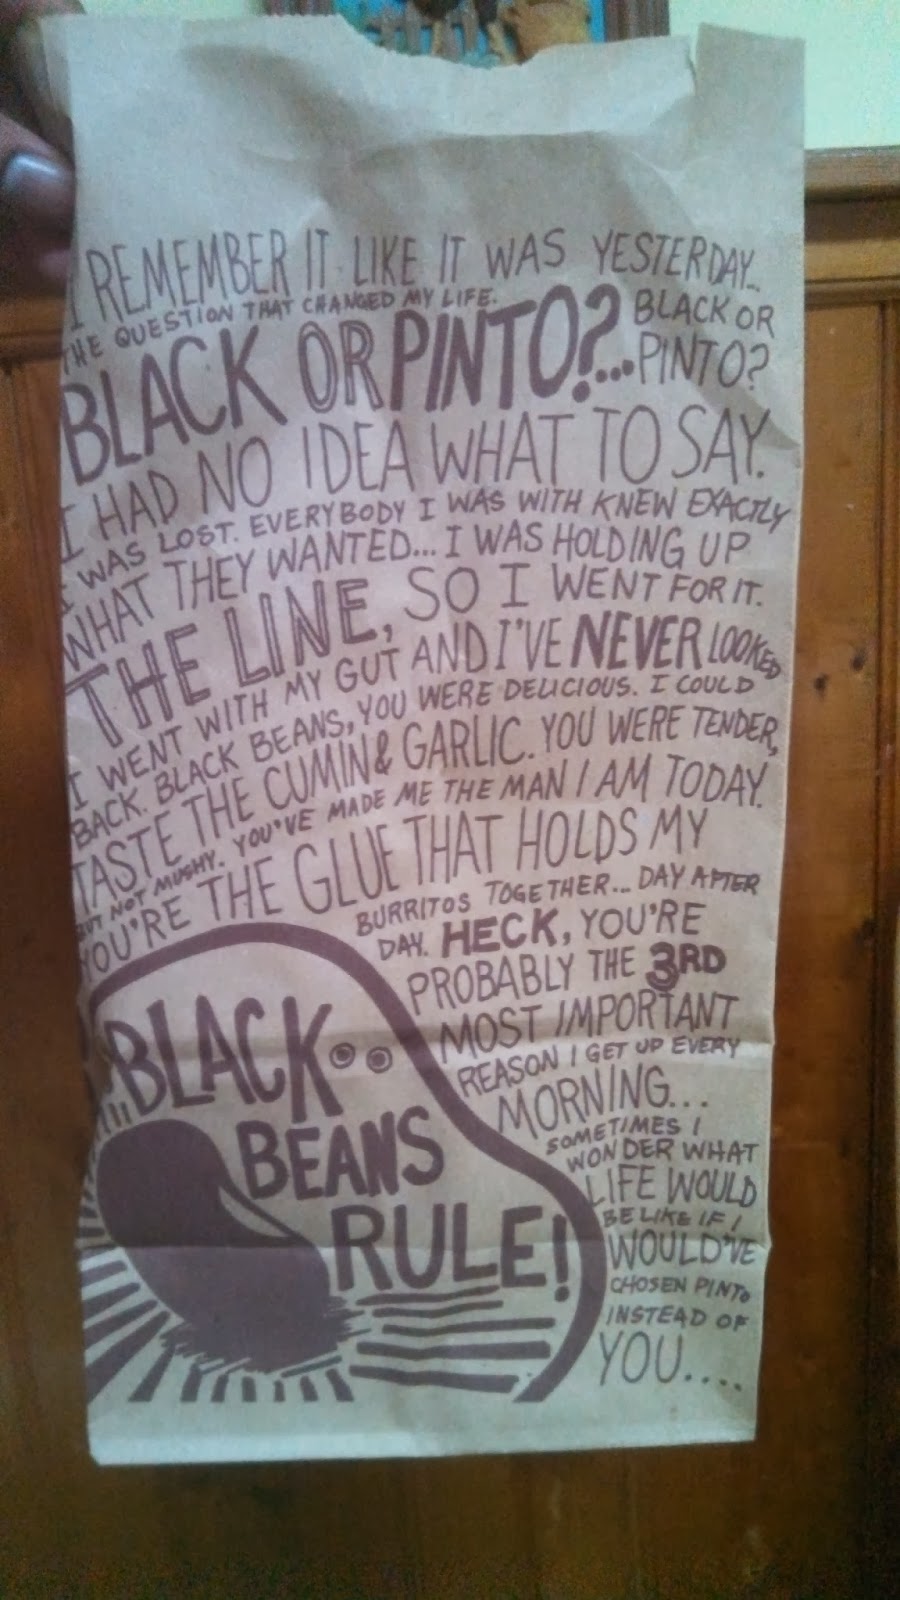 I REMEMBER IT LIKE IT WAS YESTERDAY...
THE QUESTION THAT CHANGED MY LIFE.
BLACK OR PINTO?... BLACK OR PINTO?
I HAD NO IDEA WHAT TO SAY.
I WAS LOST. EVERYBODY I WAS WITH KNEW EXACTLY
WHAT THEY WANTED... I WAS HOLDING UP
THE LINE, SO I WENT FOR IT.
I WENT WITH MY GUT AND I'VE NEVER LOOKED
BACK. BLACK BEANS, YOU WERE DELICIOUS. I COULD
TASTE THE CUMIN & GARLIC. YOU WERE TENDER,
BUT NOT MUSHY. YOU'VE MADE ME THE MAN I AM TODAY.
YOU'RE THE GLUE THAT HOLDS MY
BURRITOS TOGETHER... DAY AFTER
DAY. HECK, YOU'RE
PROBABLY THE 3RD
MOST IMPORTANT
REASON I GET UP EVERY
MORNING...
SOMETIMES I
WONDER WHAT
LIFE WOULD
BE LIKE IF I
WOULD'VE
CHOSEN PINTO
INSTEAD OF
YOU....
BLACK
BEANS
RULE!